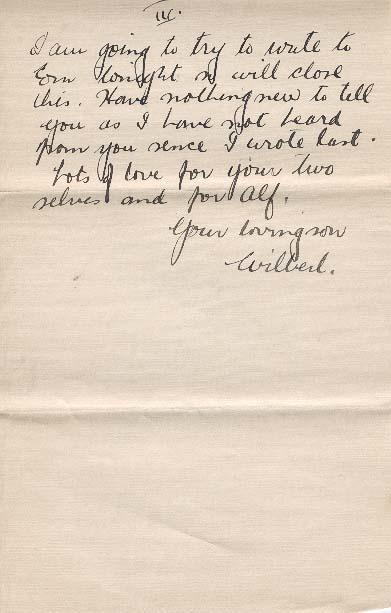 IV.
I am going to try to write to
Ern tonight so will close
this. Have nothing new to tell
you as I have not heard
from you sence I wrote last.
Lots of love for your two
selves and for Alf.
Your loving son
Wilbert.